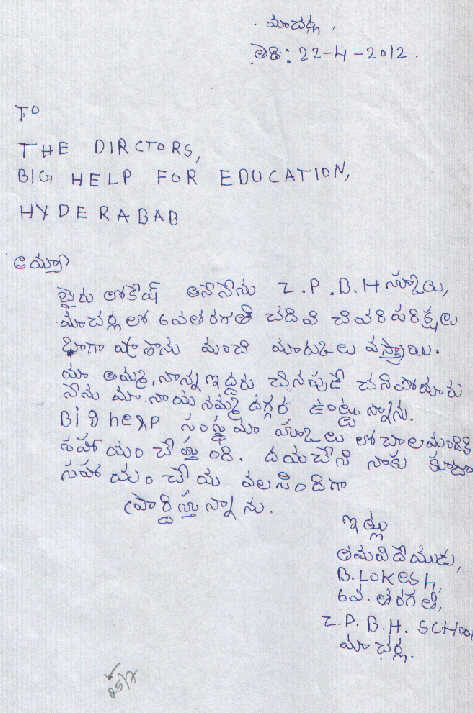 మాచర్ల,
తేది: 22-4-2012.
TO
THE DIRCTORS,
BIG HELP FOR EDUCATION,
HYDERABAD
అయ్యా
లోకేష్ అనేనేను Z.P.B.H స్కూలు,
మాచర్లలో 6వతరగతి చదివి చివరిపరిక్షలు
బాగా వ్రాశాను మంచి మార్కులు వస్తాయి.
మా అమ్మ, నాన్న ఇద్దరు చిన్నప్పుడే చనిపోయారు
నేను మా నాయనమ్మ దగ్గర ఉంట్టున్నాను.
Big help సంస్థ మా స్కూలు లో చాలమందికి
సహాయం చేస్తుంది. దయచేసి నాకు కూడా
సహాయం చేయ వలసిందిగా
ప్రార్దిస్తున్నాను.
ఇట్లు
తమవిదేయుడు,
B.LOKESH,
6వ. తరగతి,
Z.P.B.H. SCHOOL,
మాచర్ల.